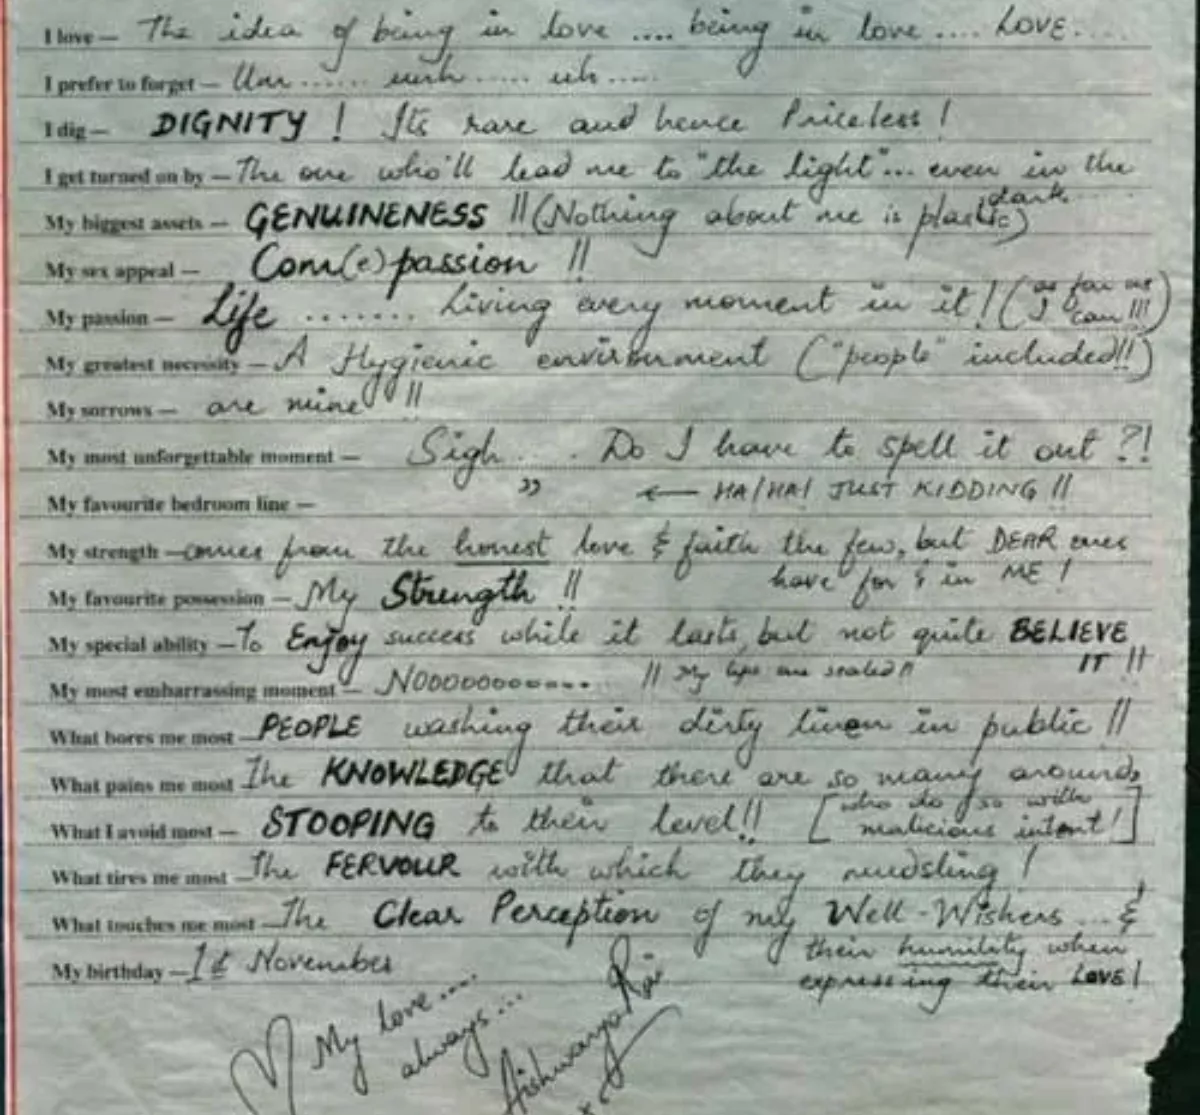 I love — The idea of being in love .... being in love .... LOVE....
I prefer to forget — Um ...... uuh ...... uh .....
I dig — DIGNITY ! Its rare and hence Priceless !
I get turned on by — The one who'll lead me to "the light"... even in the dark.....
My biggest assets — GENUINENESS !! (Nothing about me is plastic)
My sex appeal — Com(e)passion !!
My passion — Life ....... Living every moment in it! (as far as I can!!!)
My greatest necessity — A Hygienic environment ("people" included!!)
My sorrows — are mine !!
My most unforgettable moment — Sigh..... Do I have to spell it out ?!
My favourite bedroom line — " ← HA!HA! JUST KIDDING !!
My strength — comes from the honest love & faith the few, but DEAR ones
have for & in ME !
My favourite possession — My Strength !!
My special ability — To Enjoy success while it lasts, but not quite BELIEVE
IT !!
My most embarrassing moment — Noooooooo----.. !! My lips are sealed!!
What bores me most — PEOPLE washing their dirty linen in public !!
What pains me most — The KNOWLEDGE that there are so many around,
[who do so with
malicious intent!]
What I avoid most — STOOPING to their level!!
What tires me most — The FERVOUR with which they mudsling !
What touches me most — The Clear Perception of my Well-Wishers ...&
their humility when
expressing their LOVE!
My birthday — 1st November
My love....
always...
Aishwarya Rai